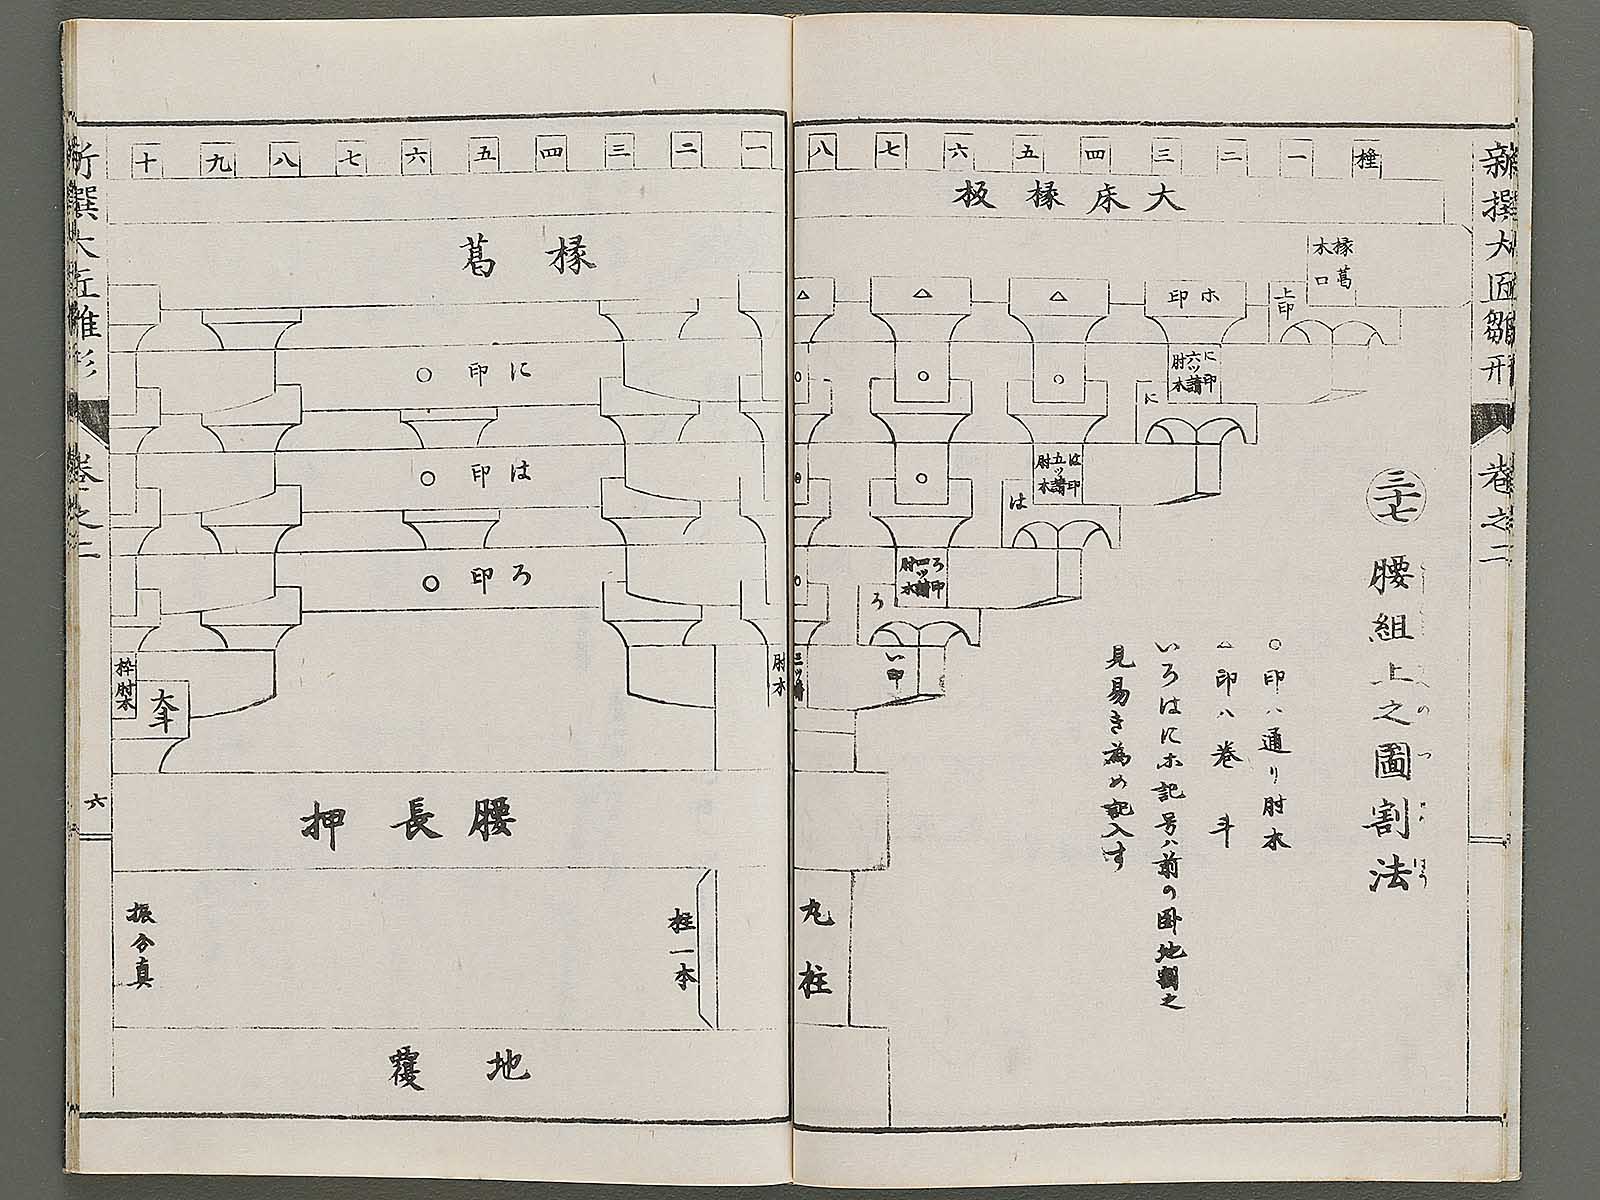 新撰大匠雛形
巻之二
三十七
腰組上之圖割法
○印ハ通リ肘木
△印ハ巻斗
いろはにホ記号ハ前の図地割之
見易き為め記入す
一
二
三
四
五
六
七
八
大床椽板
椽葛
木口
上印
ホ印
△
△
△
に印
六ツ講
肘木
に
○
○
○
は印
五ツ講
肘木
は
○
ろ印
四ツ講
肘木
ろ
○
い印
三ツ講
肘木
丸柱
一
二
三
四
五
六
七
八
九
十
椽葛
に印 ○
は印 ○
ろ印 ○
枠肘木
大斗
腰長押
柱一本
振分真
地覆
新撰大匠雛形
巻之二
六